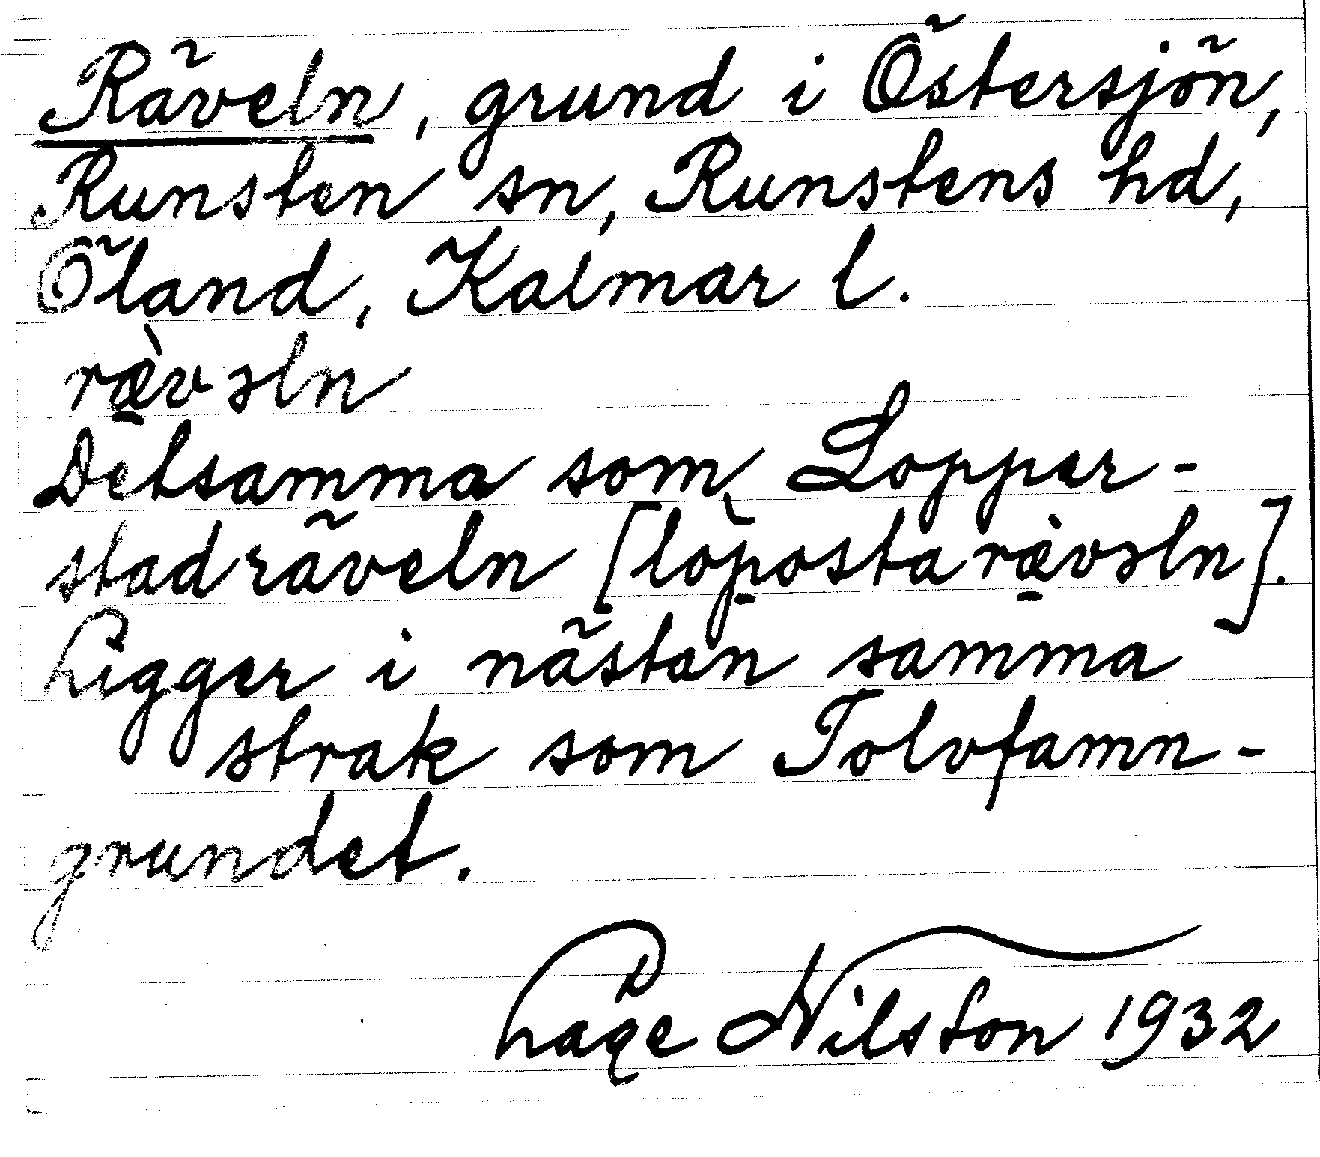 Räveln, grund i Östersjön,
Runsten sn, Runstens hd,
Öland, Kalmar l.
ræ̀vəln
Detsamma som Lopper-
stadräveln [lòpostarævəln].
Ligger i nästan samma
strak som Tolvfamn-
grundet.
Lage Nilsson 1932